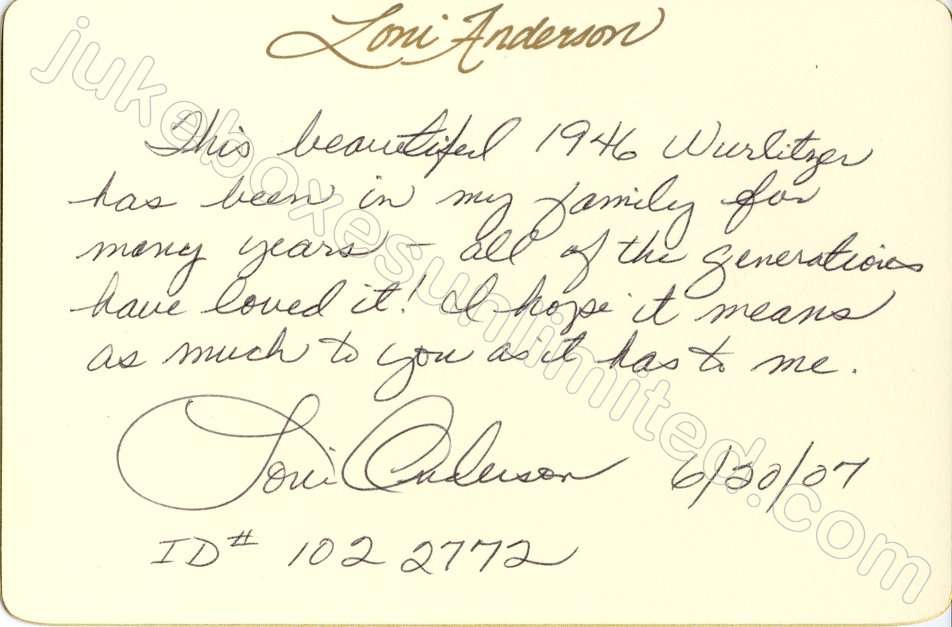 Loni Anderson
This beautiful 1946 Wurlitzer
has been in my family for
many years - all of the generations
have loved it! I hope it means
as much to you as it has to me.
Loni Anderson 6/20/07
ID# 102 2772
jukeboxesunlimited.com